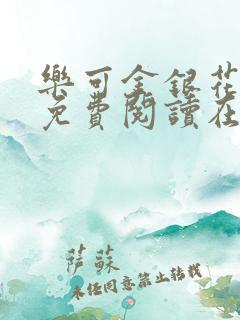 樂可金銀花
免費閱讀在
薩蘇
未經同意禁止轉載